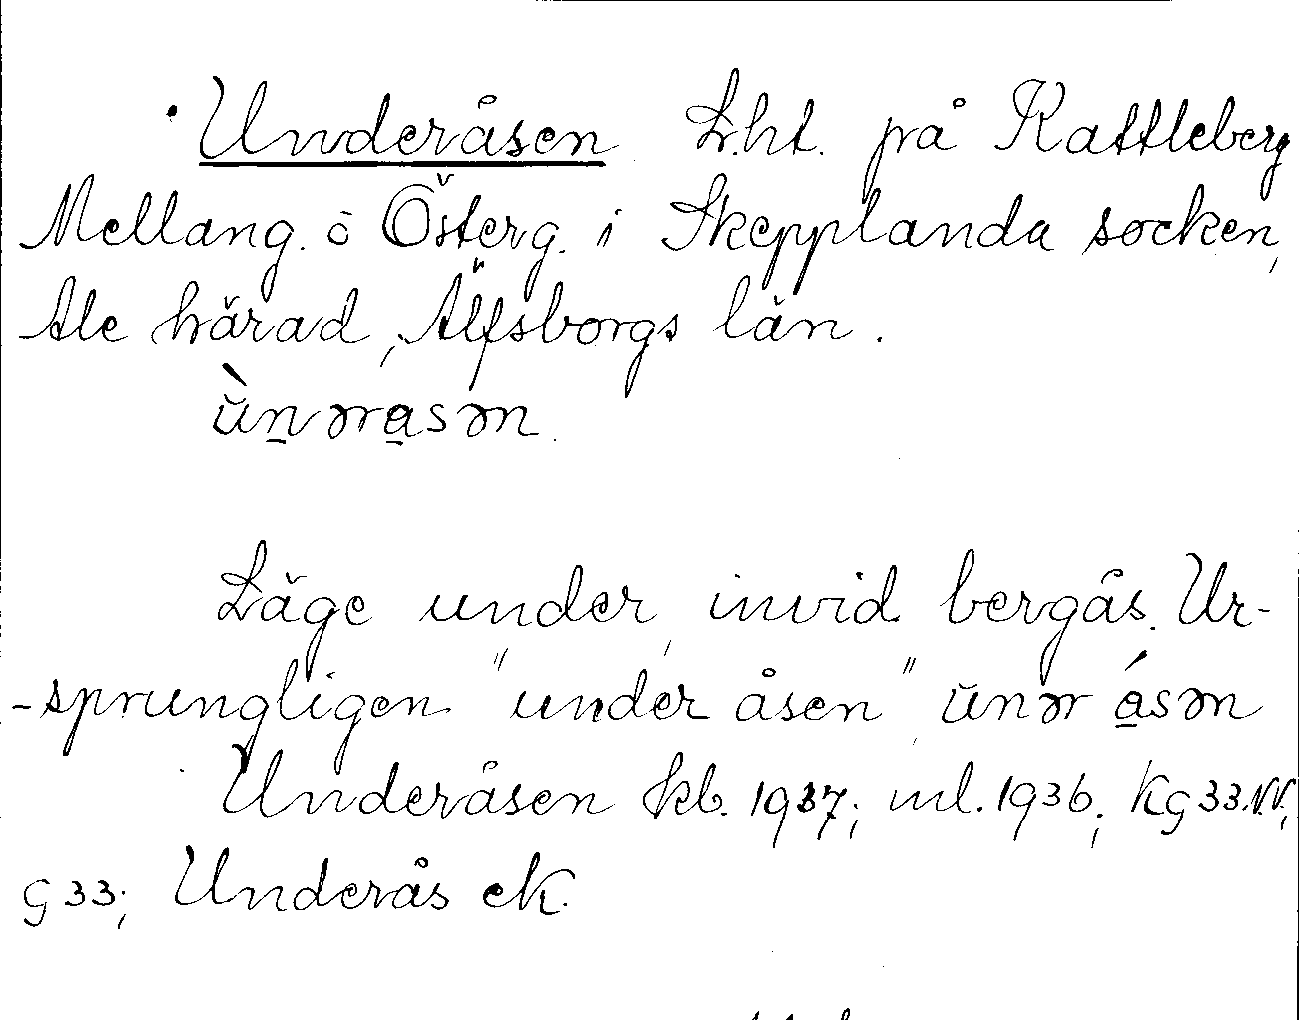 Underåsen L.ht. på Kattleberg
Mellang. o Österg. i Skepplanda socken,
Ale härad, Älfsborgs län.
ùnəra̱sən.
Läge under, invid bergås. Ur-
-sprungligen "under åsen", ŭnər á̱sən
Underåsen kb. 1937; ml. 1936; Kg 33.VV;
G 33; Underås ek.